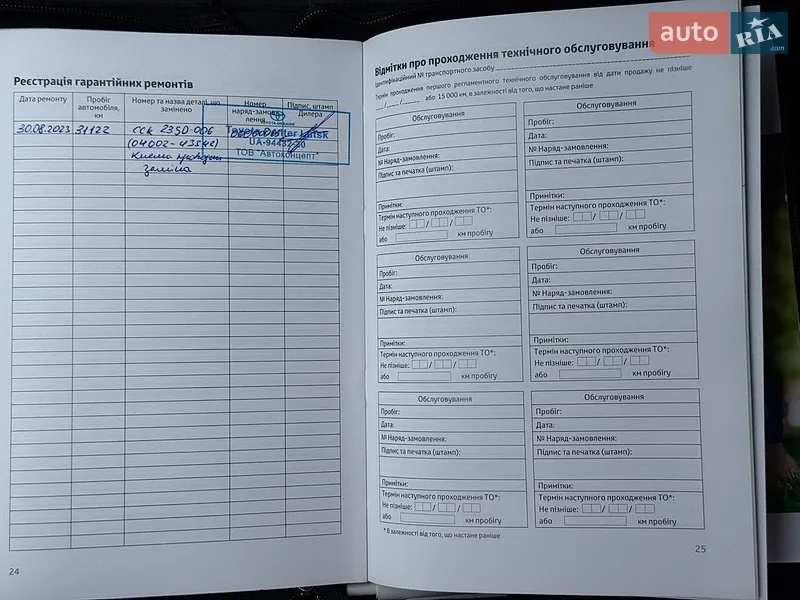 Реєстрація гарантійних ремонтів
Дата ремонту
Пробіг автомобіля, км
Номер та назва деталі, що замінено
Номер наряд-замовлення
Підпис, штамп Дилера
30.08.2023 31122 ССК 23SD-006
(04002-
Клема
заміна
Toyota Center Lutsk
UA-94432-20
ТОВ "Автоконцепт"
24
Відмітки про проходження технічного обслуговування
Ідентифікаційний № транспортного засобу
Термін проходження першого регламентного технічного обслуговування від дати продажу не пізніше
__/__/____ або 15 000 км, в залежності від того, що настане раніше
Обслуговування
Пробіг:
Дата:
№ Наряд-замовлення:
Підпис та печатка (штамп):
Примітки:
Термін наступного проходження ТО*:
Не пізніше: / /
або км пробігу
Обслуговування
Пробіг:
Дата:
№ Наряд-замовлення:
Підпис та печатка (штамп):
Примітки:
Термін наступного проходження ТО*:
Не пізніше: / /
або км пробігу
Обслуговування
Пробіг:
Дата:
№ Наряд-замовлення:
Підпис та печатка (штамп):
Примітки:
Термін наступного проходження ТО*:
Не пізніше: / /
або км пробігу
Обслуговування
Пробіг:
Дата:
№ Наряд-замовлення:
Підпис та печатка (штамп):
Примітки:
Термін наступного проходження ТО*:
Не пізніше: / /
або км пробігу
Обслуговування
Пробіг:
Дата:
№ Наряд-замовлення:
Підпис та печатка (штамп):
Примітки:
Термін наступного проходження ТО*:
Не пізніше: / /
або км пробігу
Обслуговування
Пробіг:
Дата:
№ Наряд-замовлення:
Підпис та печатка (штамп):
Примітки:
Термін наступного проходження ТО*:
Не пізніше: / /
або км пробігу
* В залежності від того, що настане раніше
25
auto RIA .com